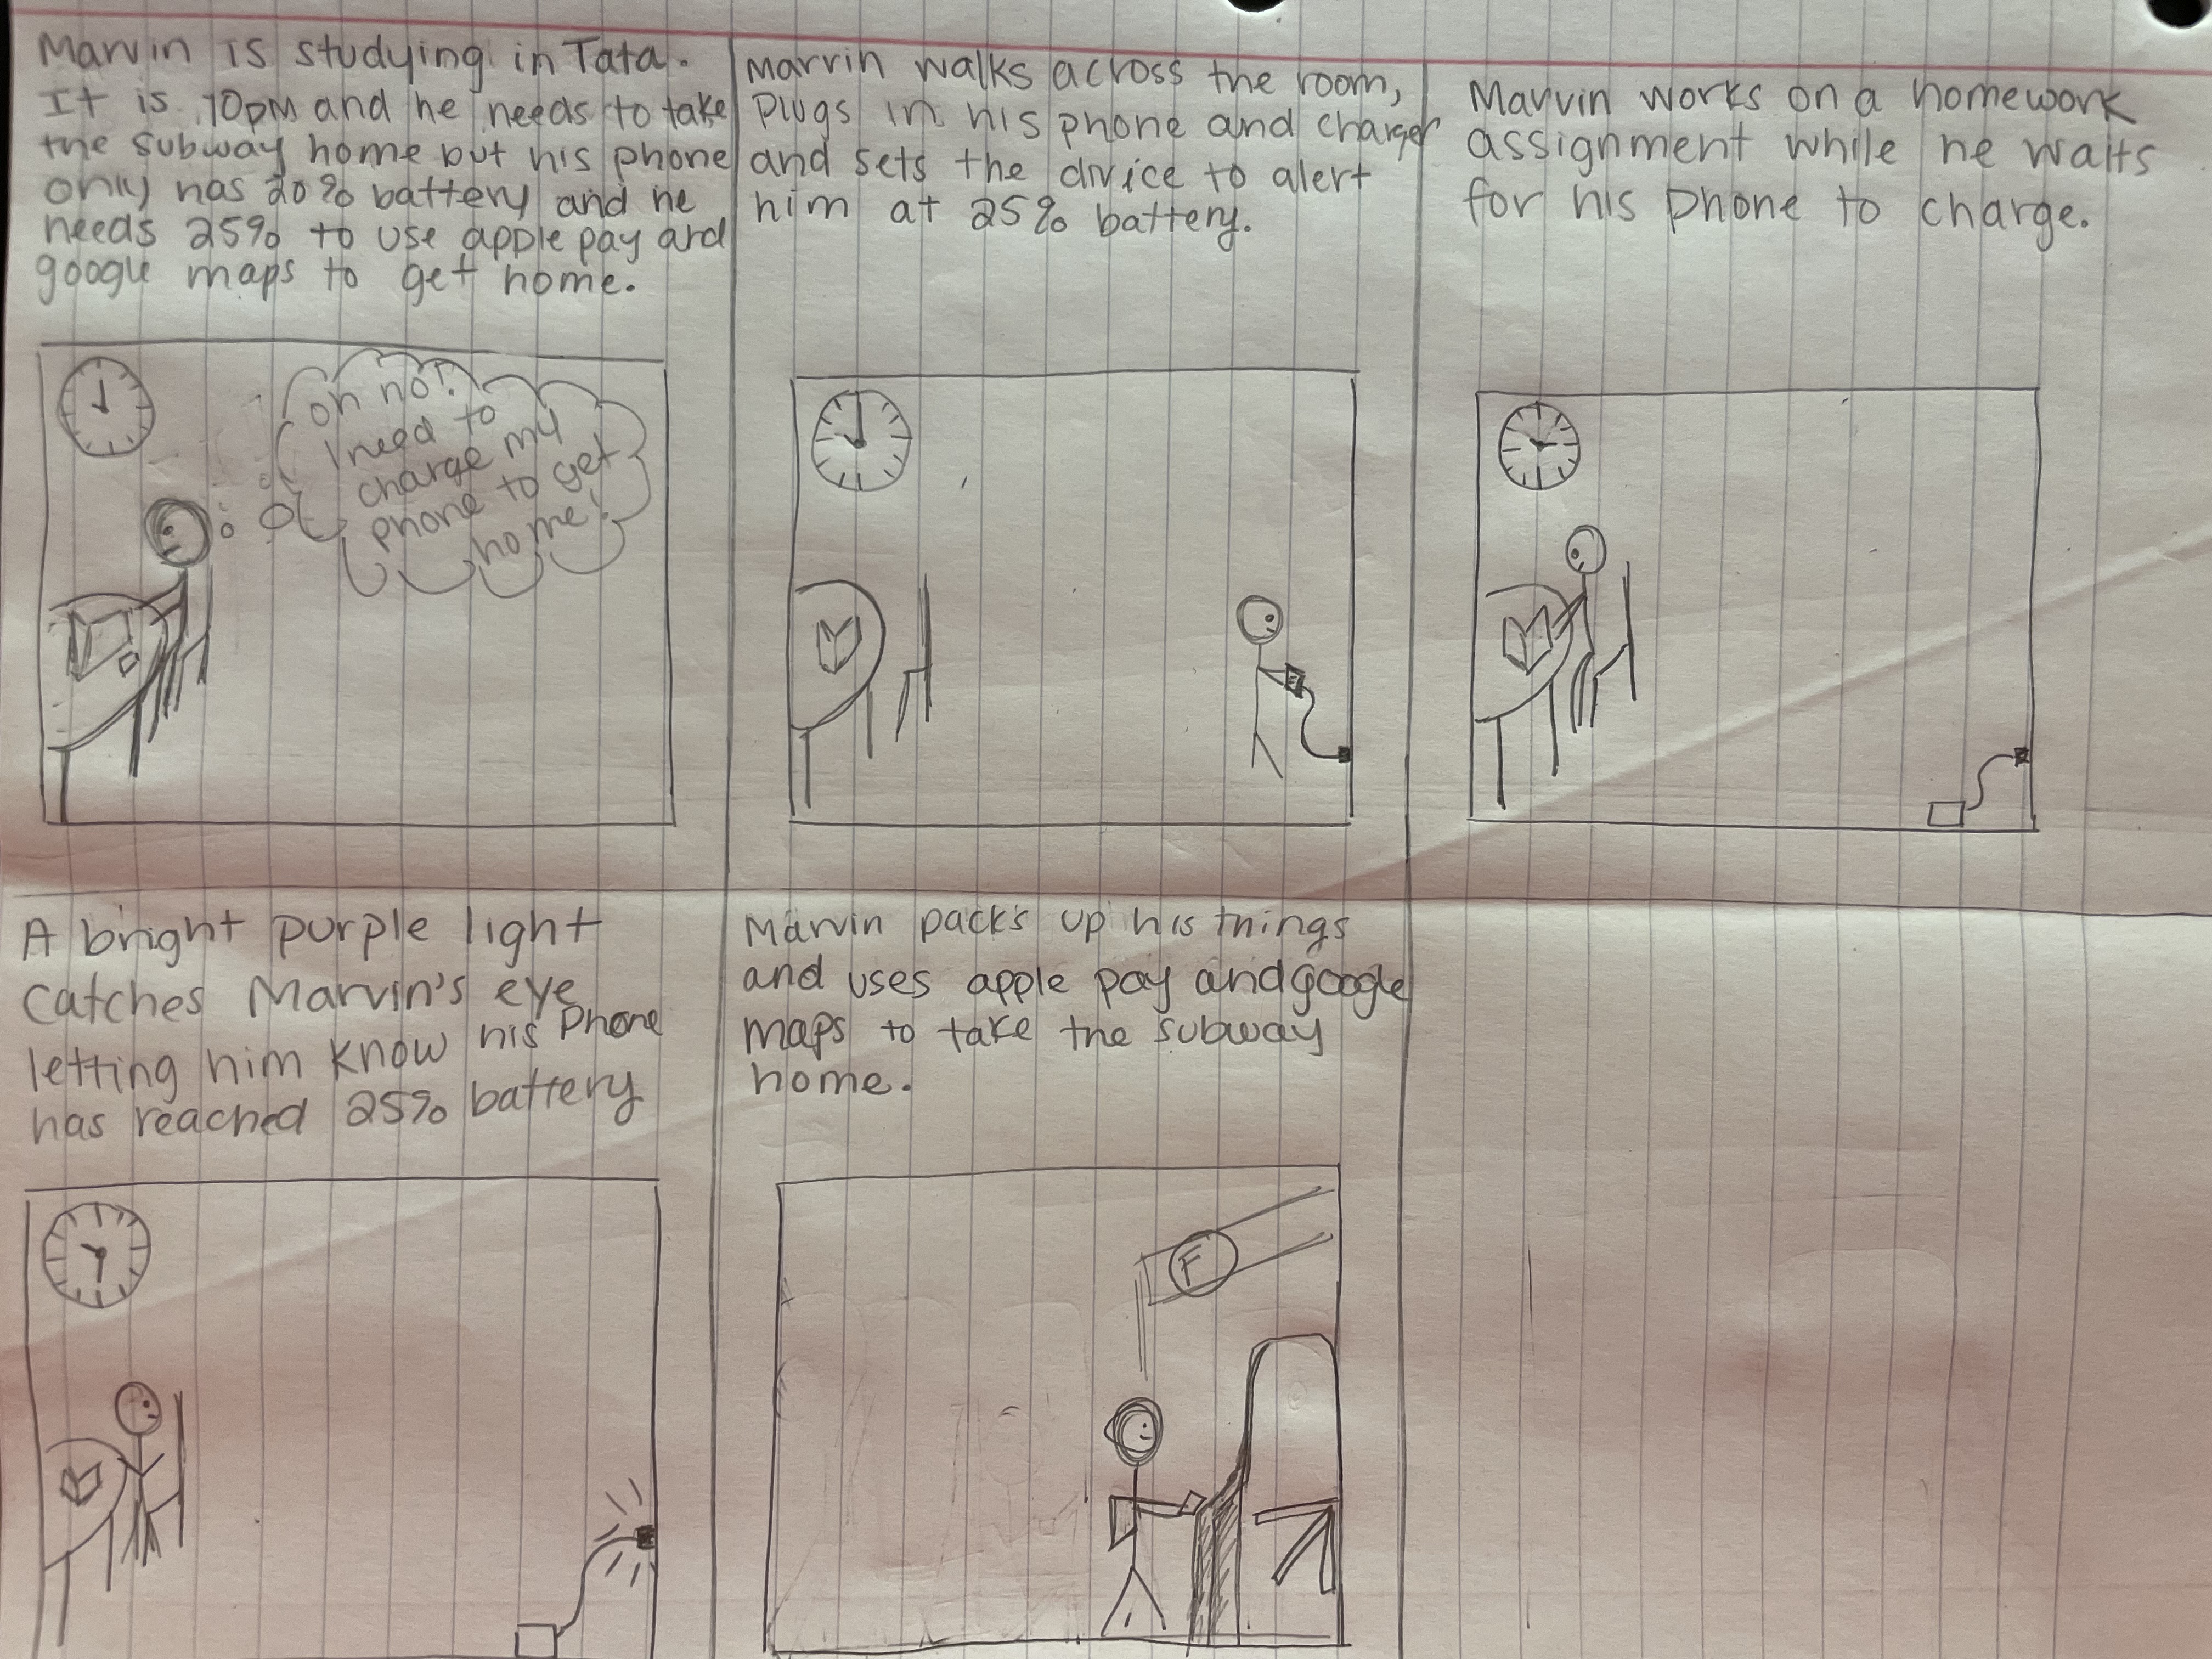 Marvin is studying in Tata.
It is 10pm and he needs to take
the subway home but his phone
only has 20% battery and he
needs 25% to use apple pay and
google maps to get home.
oh no!
I need to
charge my
phone to get
home!
Marvin walks across the room,
plugs in his phone and charger
and sets the divice to alert
him at 25% battery.
Marvin works on a homework
assignment while he waits
for his phone to charge.
A bright purple light
catches Marvin's eye
letting him know his phone
has reached 25% battery
Marvin packs up his things
and uses apple pay and google
maps to take the subway
home.
F